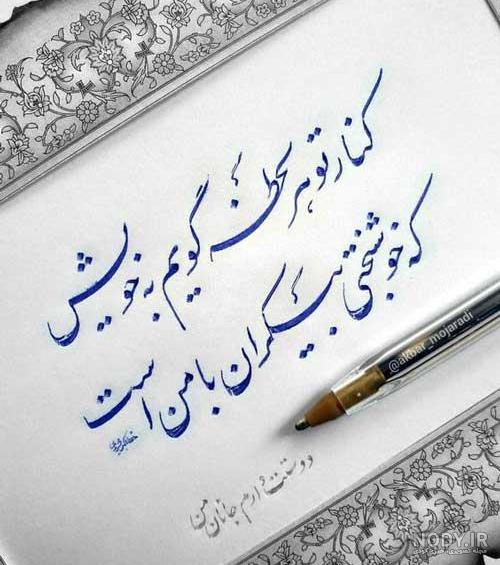 کنار تو هر لحظه گویم به خویش
که خوشبختی بیکران با من است
دوستت دارم جانان من
@akbar_mojaradi
NODY.IR